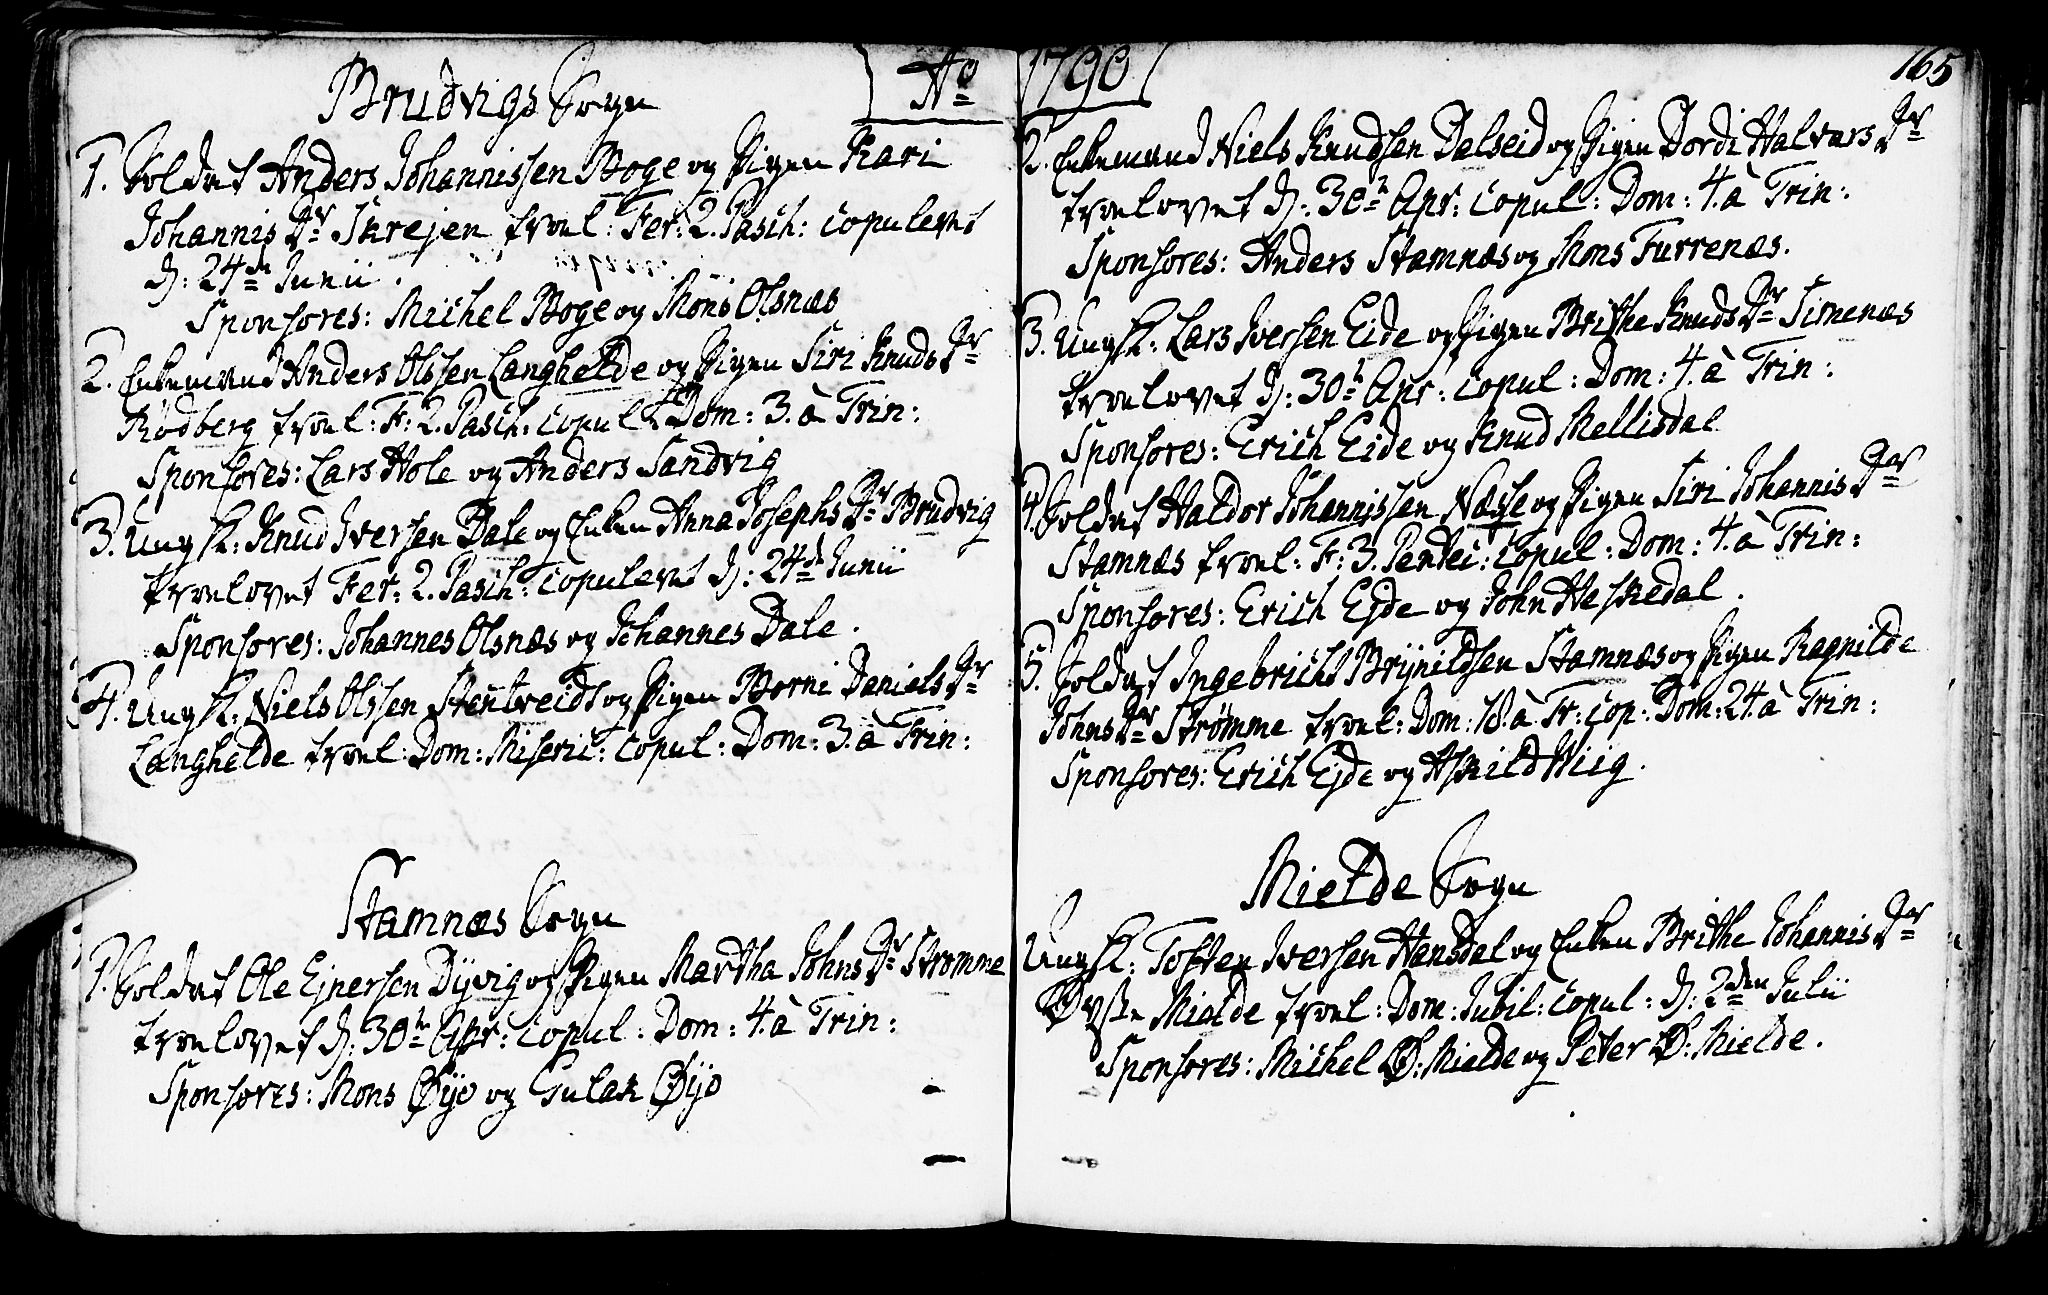 Brudvigs Sogn
Ao
1. Soldat Anders Johannissen Boge og Pigen Kari
Johannis Dr Skrejen troel: Fer: 2. Pasch: copuleret
d: 24de Junii.
Sponsores: Michel Boge og Mons Olsnæs
2. Enkemand Anders Olssen Langhelde og Pigen Siri Knuds Dr
Rödberg troel: F: 2. Pasch: copul: Dom: 3. à Trin:
Sponsores: Lars Hole og Anders Sandvig
3. Ung K: Knud Iversen Dale og Enken Anna Josephs Dr Brudvig
troelovet Fer: 2. Pasch: copuleret d: 24de Junii
Sponsores: Johannes Olsnæs og Johannes Dale.
4. Ung K: Niels Olssen og Pigen Borni Daniels Dr
Langhelde troel: Dom: Miseric: copul: Dom: 3. à Trin:
Stamnæs Sogn
1. Soldat Ole Ejnersen Dÿvig og Pigen Martha Johns Dr Strømme
troelovet d: 30te Apr: copul: Dom: 4. à Trin:
Sponsores: Mons Øÿo og Gulak Øÿo
1790
165
2. Enkemand Niels Knudsen Dalseid og Pigen Dordi Halvars Dr
troelovet d: 30te Apr: copul: Dom: 4. à Trin:
Sponsores: Anders Stamnæs og Mons Furrenæs.
3. Ung K: Lars Iversen Eide og Pigen Brithe Knuds Dr Simenæs
troelovet d: 30te Apr: copul: Dom: 4. à Trin:
Sponsores: Erich Eide og Knud Mellisdal
4. Soldat Haldor Johannissen og Pigen Siri Johannis Dr
Stamnæs troel: F: 3. Pentec: copul: Dom: 4. à Trin:
Sponsores: Erich Ejde og John Heskedal.
5. Soldat Ingebricht Brÿnildsen Stamnæs og Pigen Ragnilde
Johns Dr Strømme troel: Dom: 18. à Tr: cop: Dom: 24. à Trin:
Sponsores: Erich Ejde og Askild Wiig.
Mielde Sogn
Ung K: Tosten Iversen Hansdal og Enken Brithe Johannis Dr
Mielde troel: Dom: Jubil: copul: d: 2den Julii
Sponsores: Michel Ø: Mielde og Peter Ø: Mielde.